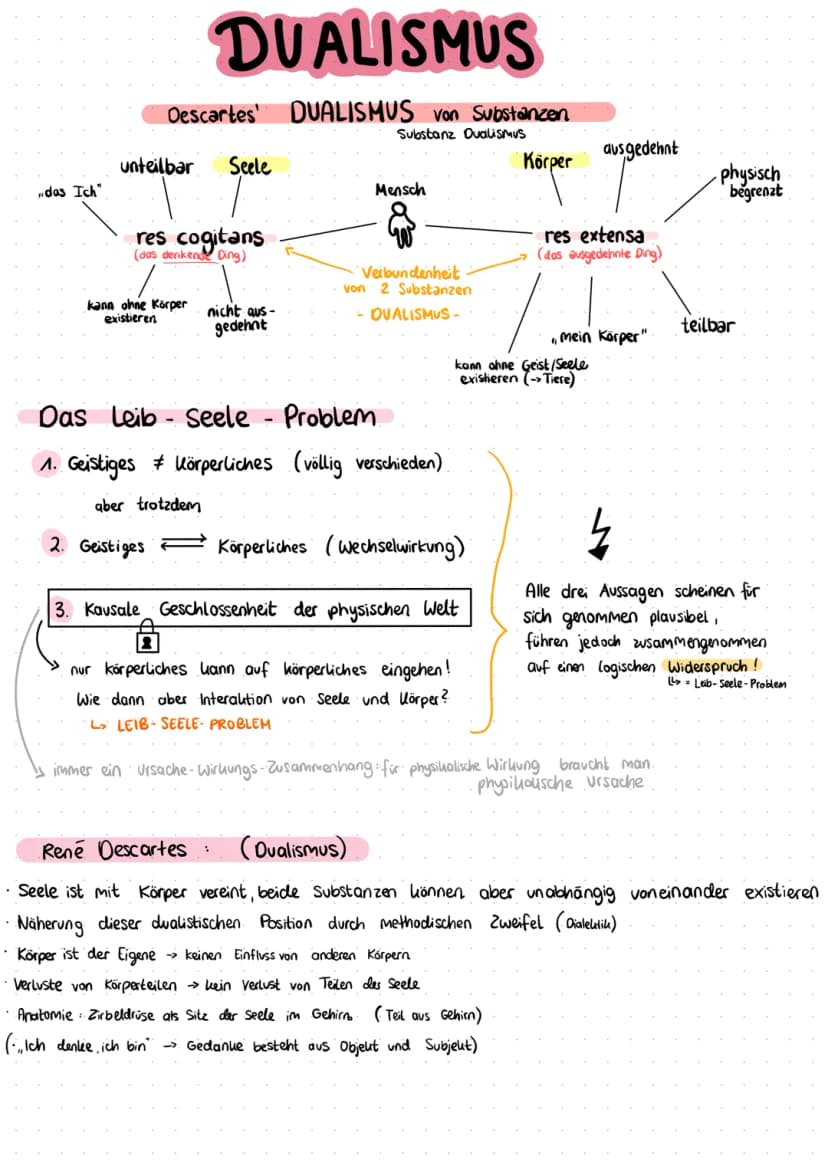 DUALISMUS
Descartes' DUALISMUS von Substanzen
Substanz Dualismus
unteilbar
Seele
„das Ich"
res cogitans
(das denkende Ding)
kann ohne Körper
existieren
nicht aus-
gedehnt
Mensch
Verbundenheit
von 2 Substanzen
- DUALISMUS -
Körper
ausgedehnt
physisch
begrenzt
res extensa
(das ausgedehnte Ding)
„mein Körper"
teilbar
kann ohne Geist/Seele
existieren (→ Tiere)
Das Leib - Seele - Problem
1. Geistiges ≠ Körperliches (völlig verschieden)
aber trotzdem
2. Geistiges ⇄ Körperliches (Wechselwirkung)
3. Kausale Geschlossenheit der physischen Welt
nur körperliches kann auf körperliches eingehen!
Wie dann aber Interaktion von Seele und Körper?
↳ LEIB-SEELE-PROBLEM
Alle drei Aussagen scheinen für
sich genommen plausibel,
führen jedoch zusammengenommen
auf einen logischen Widerspruch!
↳ = Leib-Seele-Problem
immer ein Ursache-Wirkungs-Zusammenhang: für physikalische Wirkung braucht man
physikalische Ursache
René Descartes : (Dualismus)
· Seele ist mit Körper vereint, beide Substanzen können aber unabhängig voneinander existieren
· Näherung dieser dualistischen Position durch methodischen Zweifel (Dialektik)
· Körper ist der Eigene → keinen Einfluss von anderen Körpern
· Verluste von Körperteilen → kein Verlust von Teilen der Seele
· Anatomie : Zirbeldrüse als Sitz der Seele im Gehirn (Teil aus Gehirn)
(· „Ich denke, ich bin" → Gedanke besteht aus Objekt und Subjekt)